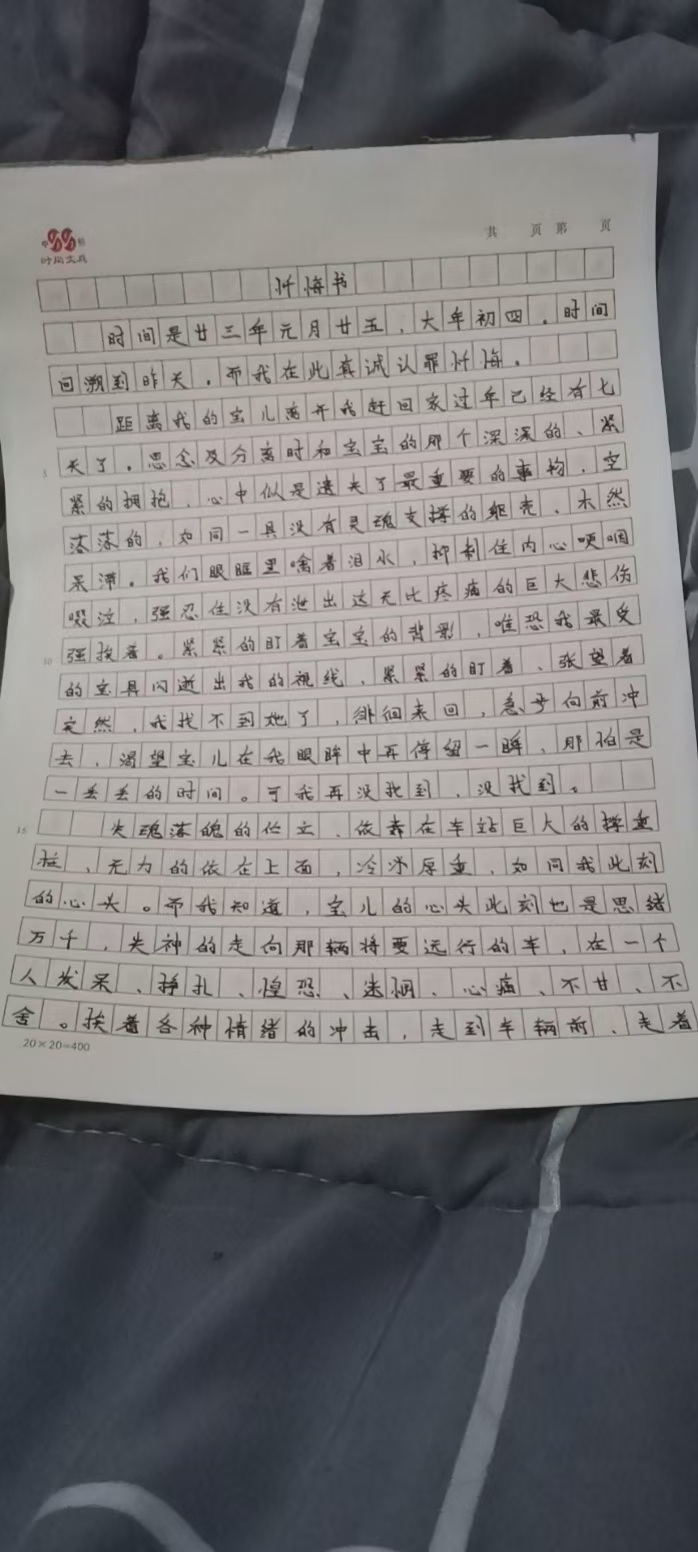 时尚文具
共 页 第 页
忏悔书
时间是廿三年元月廿五，大年初四。时间
回溯到昨天，而我在此真诚认罪忏悔。
距离我的宝儿离开我赶回家过年已经有七
5 天了。思念及分离时和宝宝的那个深深的、紧
紧的拥抱，心中似是遗失了最重要的事物，空
落落的，如同一具没有灵魂支撑的躯壳、木然
呆滞。我们眼眶里噙着泪水，抑制住内心哽咽
啜泣，强忍住没有泄出这无比疼痛的巨大悲伤
10 强挨着。紧紧的盯着宝宝的背影，唯恐我最爱
的宝具闪逝出我的视线，紧紧的盯着、张望着
突然，我找不到她了，徘徊来回，急乎向前冲
去，渴望宝儿在我眼眸中再停留一瞬、那怕是
一丢丢的时间。可我再没找到，没找到。
15 失魂落魄的伫立、依靠在车站巨大的撑重
柱、无力的依在上面，冷冰厚重，如同我此刻
的心头。而我知道，宝儿的心头此刻也是思绪
万千，失神的走向那辆将要远行的车，在一个
人发呆、挣扎、惶恐、迷惘、心痛、不甘、不
舍。挨着各种情绪的冲击，走到车辆前、走着
20×20=400